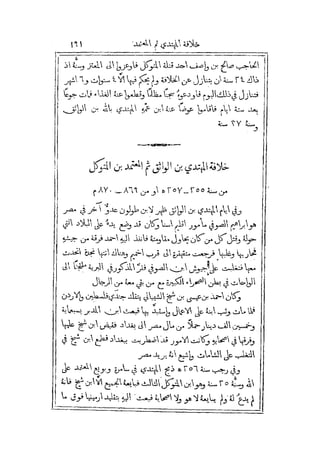 خلافة المهتدي ثم المعتمد ١٦١
الحاجب صالح بن وصيف احد قتلة المتوكل فاوعزوا الى المعتز وسنه اذ
ذاك ٢٤ سنة ان يتنازل عن الخلافة ولم يحكم فيها الا ٤ سنوات و٦ اشهر
فتنازل في ذلك اليوم فاودعوه سجنًا مظلمًا وقطعوا عنه الغذاء فمات جوعًا
بعد ستة ايام فاقاموا عوضًا عنه ابن عمه المهتدي بالله بن الواثق
وسنه ٣٧ سنة
خلافة المهتدي بن الواثق ثم المعتمد بن المتوكل
من سنة ٢٥٥ـ ٢٥٧ ه او من ٨٦٩ـ ٨٧٠ م
وفي ايام المهتدي بن الواثق ظهر لابن طولون عدو آخر في مصر
هو ابراهيم الصوفي مأمور اقليم اسنا وكان قد وضع يده على البلاد التي
حوله وقتل كل من كان يحاول مقاومته فانفذ اليه احمد فرقة من جيشه
تحاربها وغلبها فرجعت متقهقرة الى قرب اخميم وهناك اتتها نجدة اتحدت
معها فتغلبت على جيوش ابن الصوفي ففر المذكور في البرية ملتجئًا الى
الواحات في بطن الصحراء الكبيرة مع من بقي معه من الرجال
وكان احمد بن عيسى بن شيخ الشيباني يتقلد جندي فلسطين والاردن
فلما مات وثب ابنه على الاعمال واستبد بها فبعث ابن المدبر بسبعماية
وخمسين الف دينار حملًا من مال مصر الى بغداد فقبض ابن شيخ عليها
وفرقها في اصحابه وكانت الامور قد اضطربت ببغداد فطمع ابن شيخ في
التغلب على الشامات واشيع انه يريد مصر
وفي رجب سنة ٢٥٦ ه ذبح المهتدي في سامرة وبويع المعتمد على
الله وسنه ٢٥ سنة وهو ابن المتوكل الثالث فبايعه الجميع الا ابن شيخ فانه
لم يدع له ولم يبايعه لا هو ولا اصحابه فبعث اليه بتقليد ارمينيا فوق ما